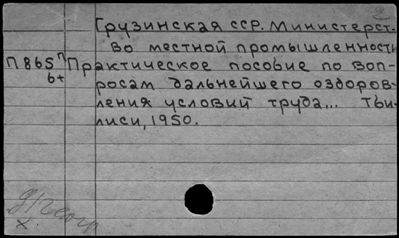 Грузинская ССР. Министерст-
во местной промышленности
П865п Практическое пособие по воп-
6+ росам дальнейшего оздоров-
ления условий труда... Тби-
лиси, 1950.